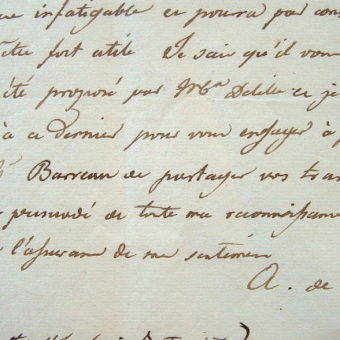 infatigable et pourra par
être fort utile Je sais qu'il vous
été proposé par Mr Delille et je
à ce dernier pour vous engager à
Barreau de partager vos
persuadé de toute ma reconnaissance
l'assurance de mes sentimens
A. de